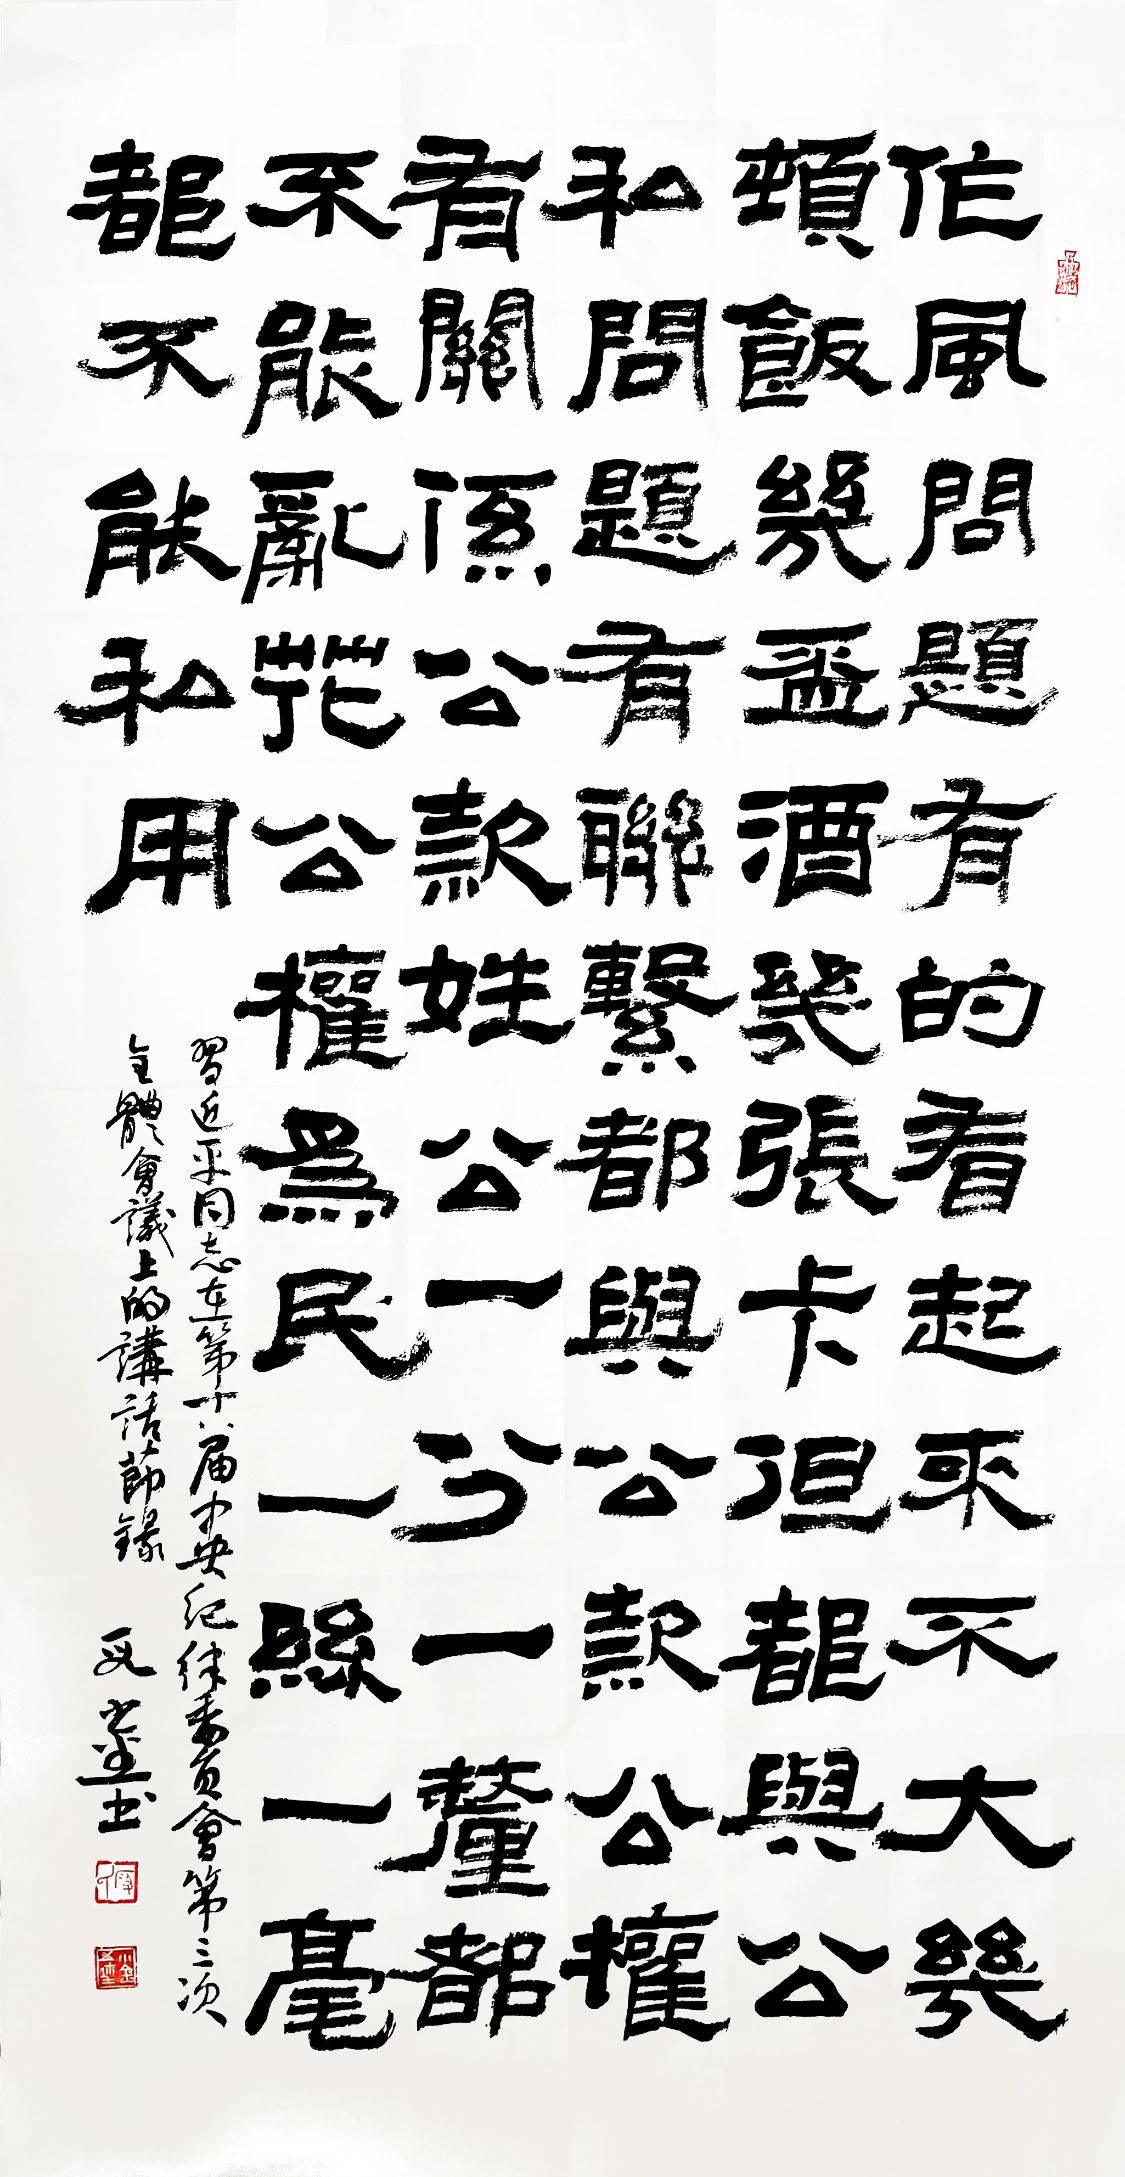 作風問題有的看起來不大幾
頓飯幾盃酒幾張卡但都與公
私問題有聯繫都與公款公權
有關係公款姓公一分一釐都
不能亂花公權爲民一絲一毫
都不能私用
習近平同志在第十八届中央紀律委員會第三次
全體會議上的講話節錄
书